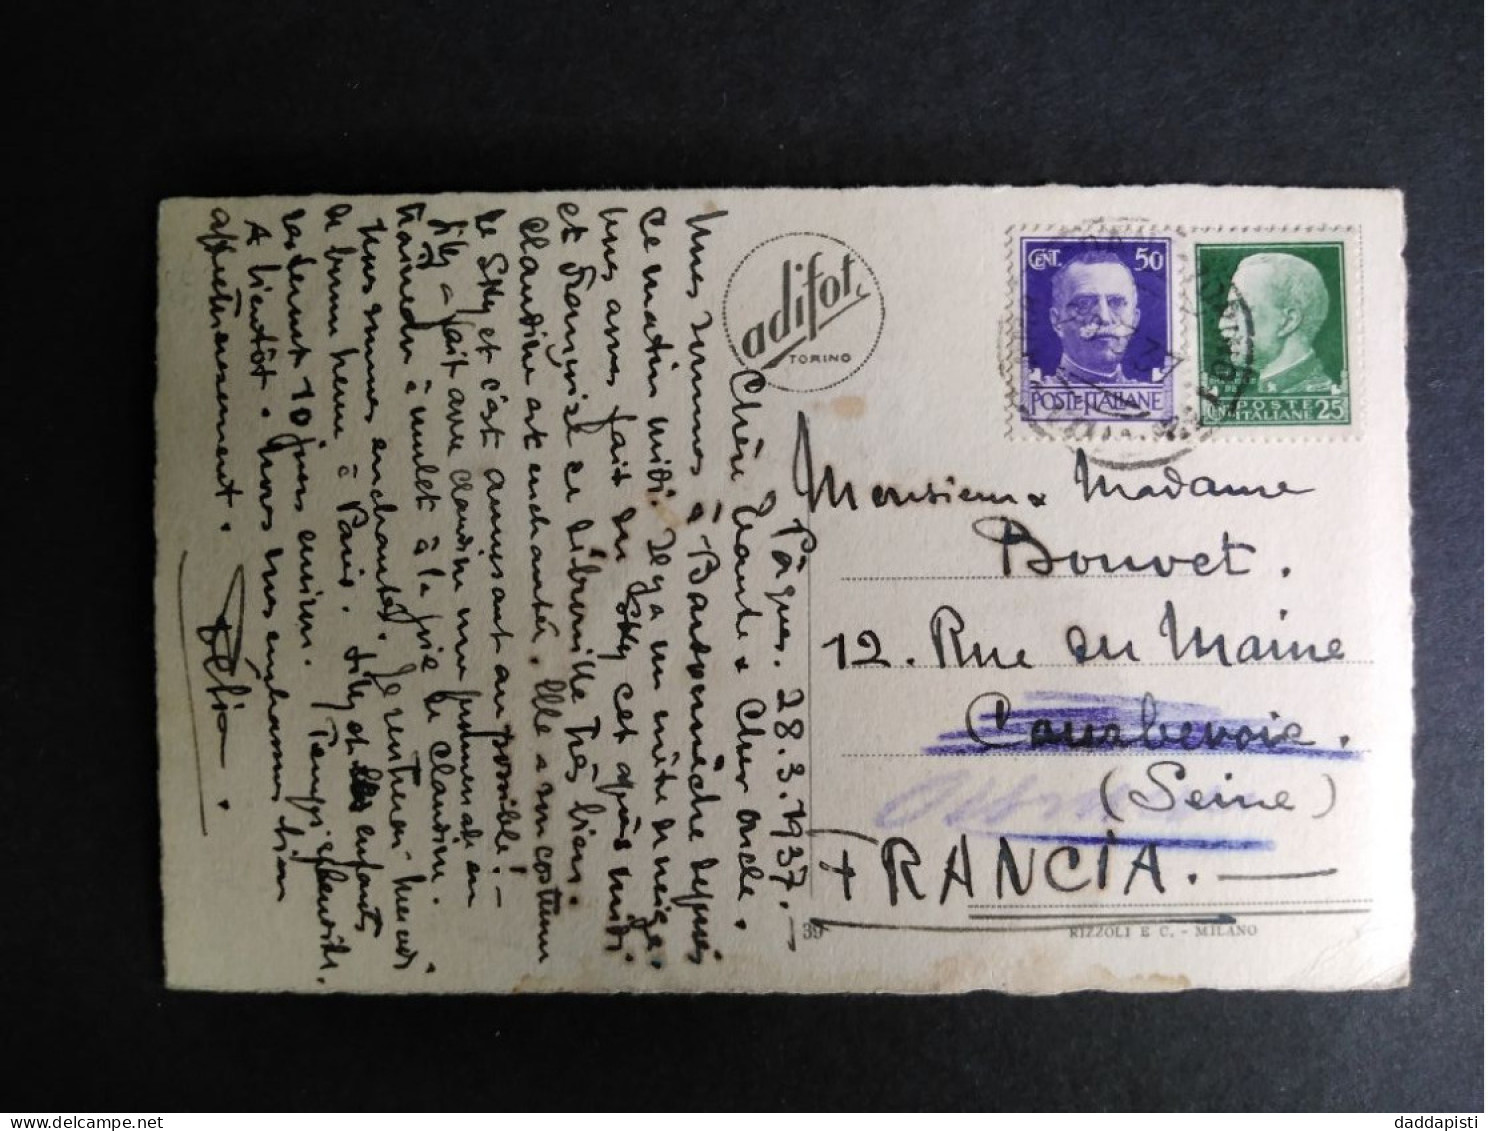 Pâques. 28.3.1937.-
Chère Tante & Cher Oncle.
Nous sommes à Bardonnèche depuis
ce matin midi. Il y a un mètre de neige.
Nous avons fait du sky cet après midi
et Françoise se débrouille très bien.
Claudine est enchantée. Elle a un costume
de Sky et c'est amusant au possible! -
Lily a fait avec Claudine une promenade en
traineau à mulet à la joie de Claudine.
Nous sommes enchantés. Je rentrerai mercredi
de bonne heure à Paris. Lily et les enfants
resteront 10 jours environ. Temps splendide.
A bientôt. Nous vous embrassons bien
affectueusement.
adifot
TORINO
CENT. 50
POSTE ITALIANE
POSTE
ITALIANE 25
Monsieur & Madame
Bouvet.
12. Rue du Maine
Courbevoie.
(Seine)
FRANCIA.
39
RIZZOLI E C. - MILANO
delcampe.net
daddapisti